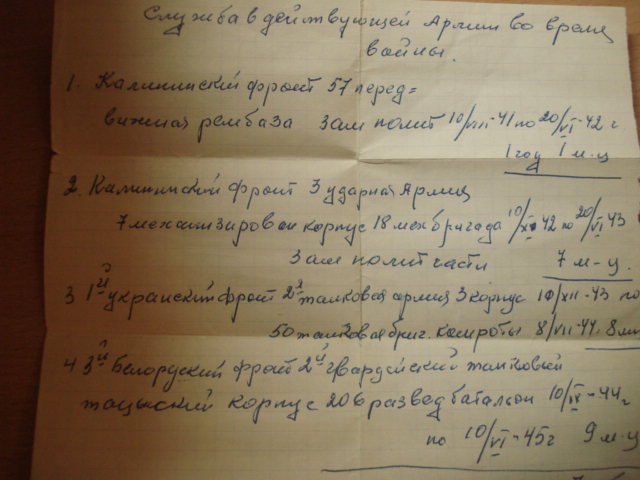 Служба в действующей Армии во время
войны.
1. Калининский фронт 57 перед=
вижная рембаза зам полит 10/VIII-41 по 20/VI-42 г
1 год 1 м-ц
2. Калининский фронт 3 ударная Армия
7 механизирован корпус 18 мехбригада 10/XI 42 по 20/VI 43
Зам полит части 7 м-ц.
3 1й укранский фронт 2я танковая армия 3 корпус 10/XII-43 по
50 танковая бриг. комроты 8/VII-44. 8 м
4 3й Белоруский фронт 2й гвардейский танковый
тацынский корпус 206 разведбатальон 10/IX-44 г
по 10/VI-45 г 9 м-ц